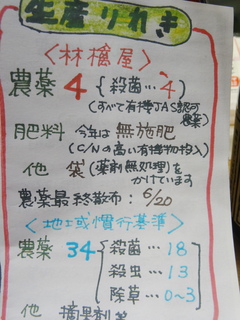 生産りれき
<林檎屋>
農薬 4 {殺菌… 4
(すべて有機JAS認可農薬)
肥料 今年は 無施肥
(C/Nの高い有機物投入)
他 袋(薬剤無処理)を
かけています
農薬最終散布: 6/20
<地域慣行基準>
農薬 34 {殺菌… 18
殺虫… 13
除草… 0~3
他 摘果剤